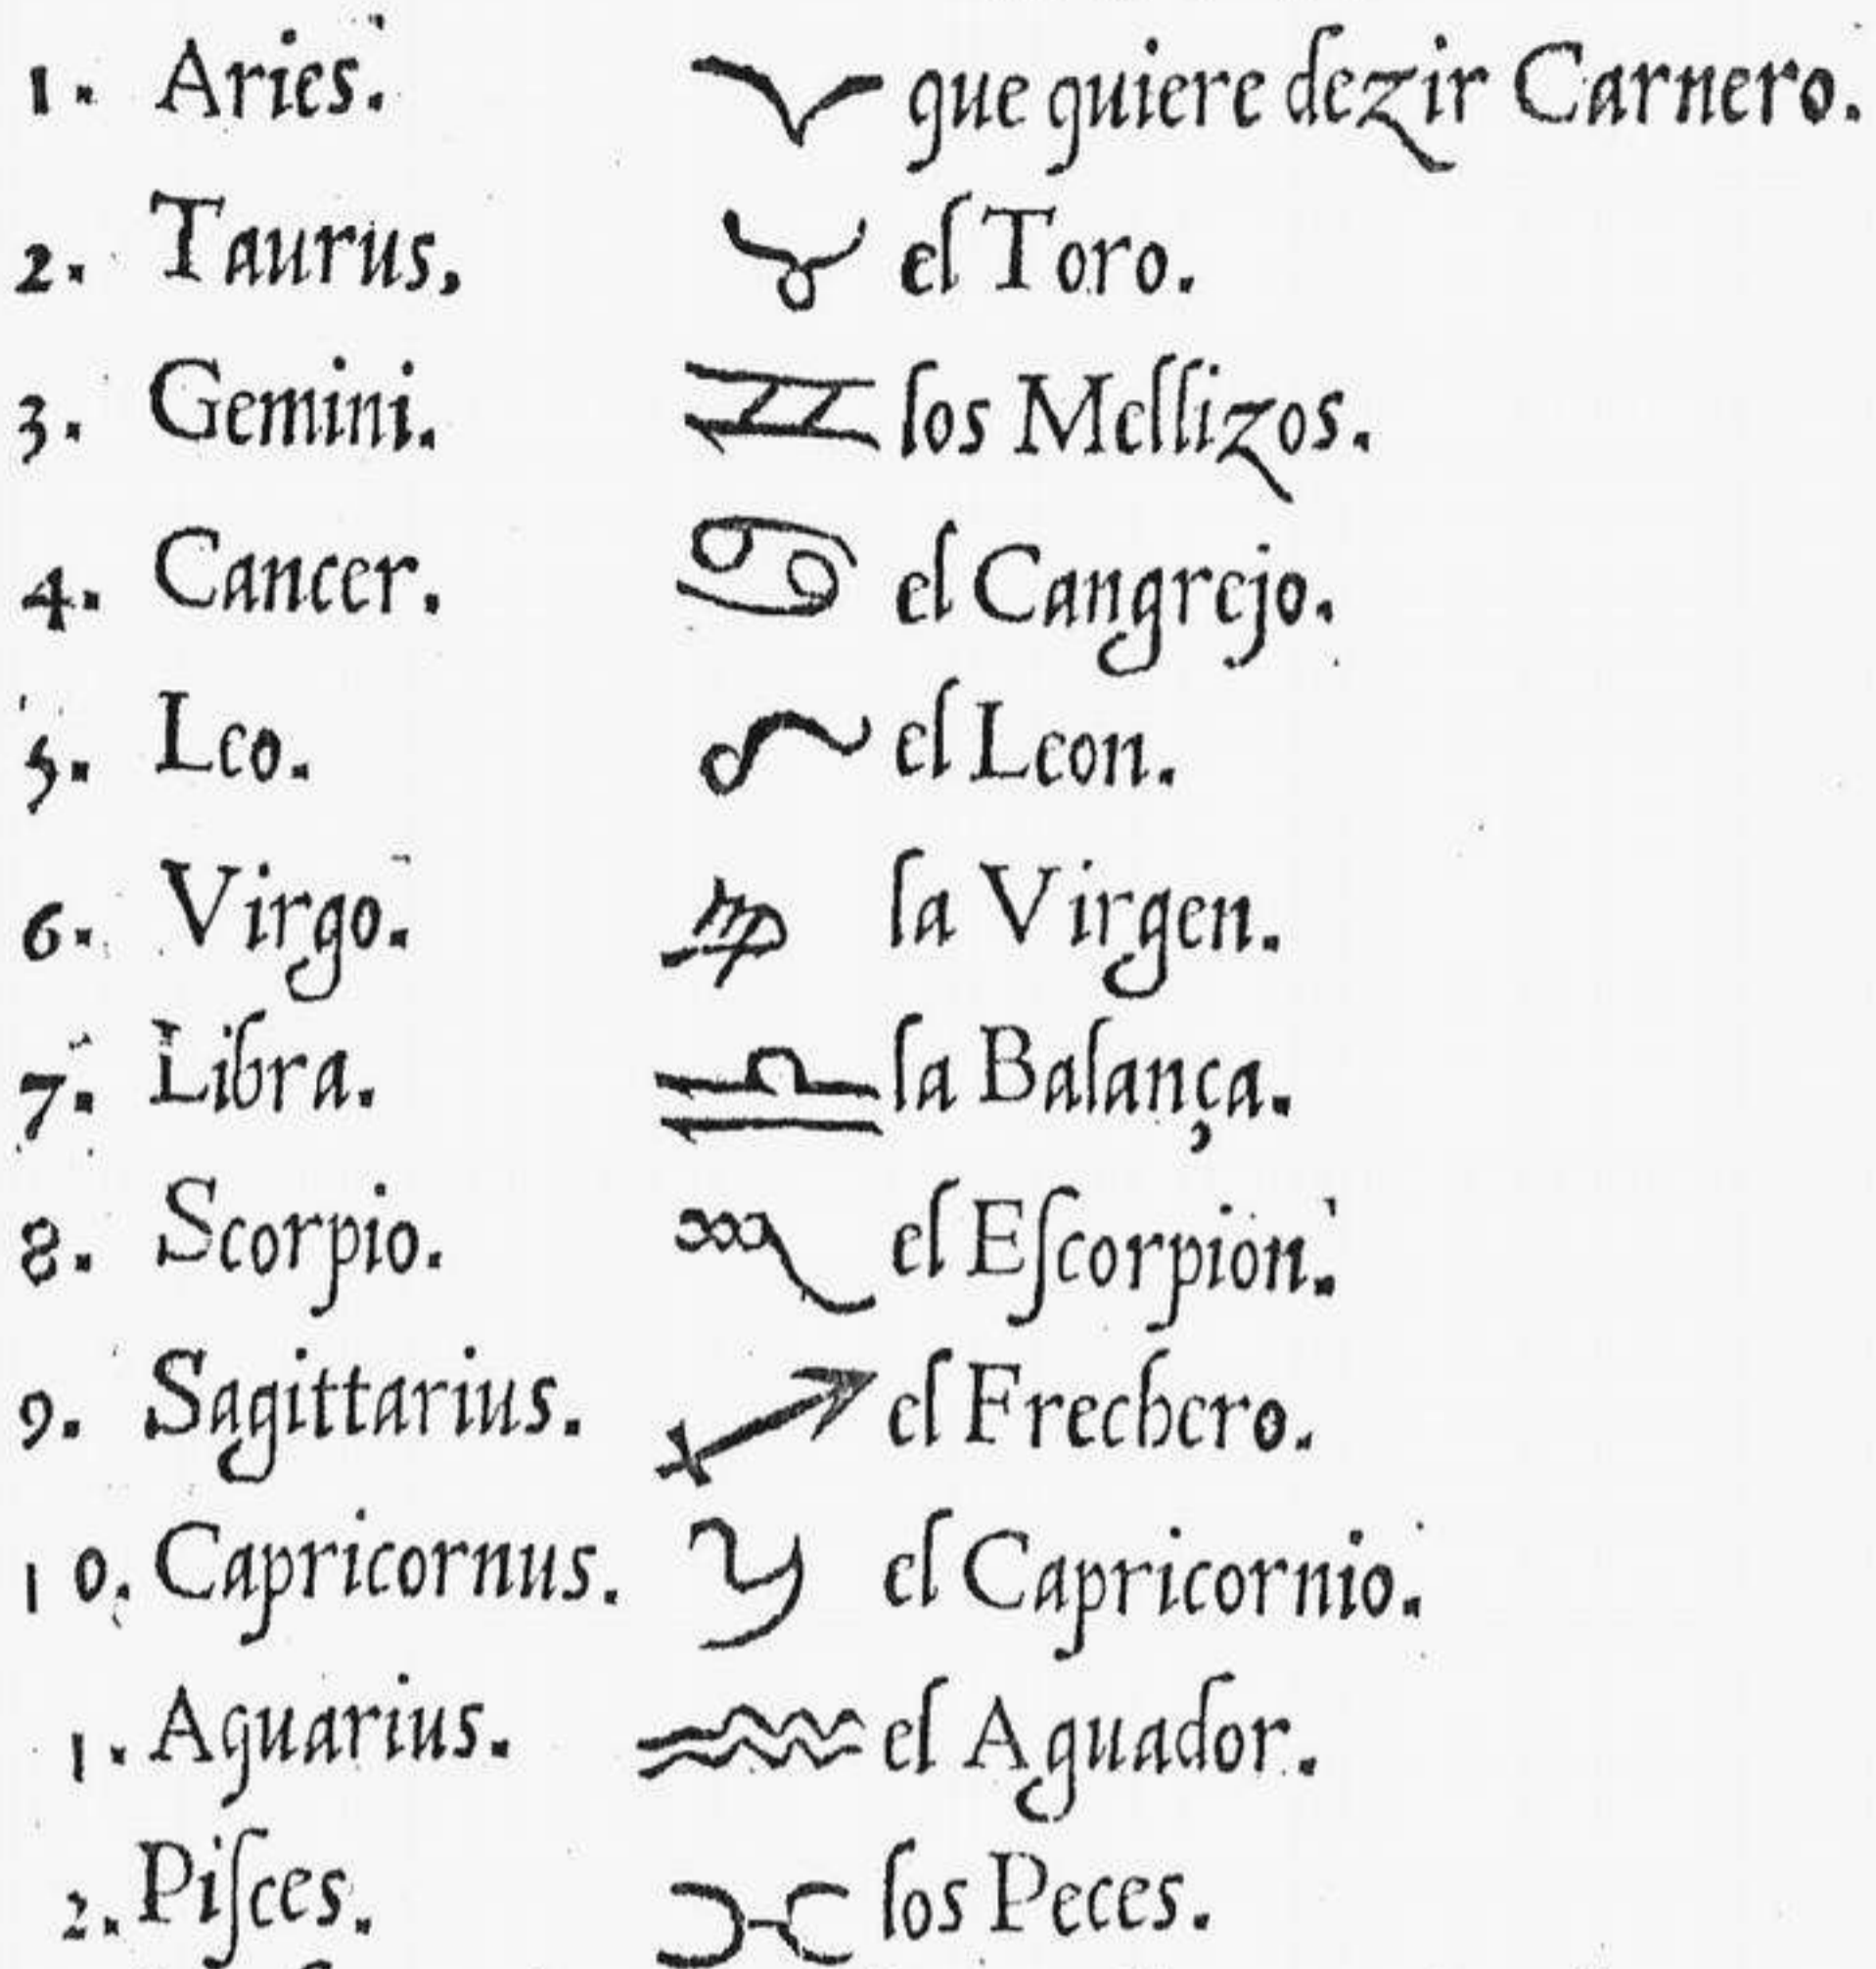 1. Aries. ♈ que quiere dezir Carnero.
2. Taurus, ♉ el Toro.
3. Gemini. ♊ los Mellizos.
4. Cancer. ♋ el Cangrejo.
5. Leo. ♌ el Leon.
6. Virgo. ♍ la Virgen.
7. Libra. ♎ la Balança.
8. Scorpio. ♏ el Eſcorpion.
9. Sagittarius. ♐ el Frechero.
10. Capricornus. ♑ el Capricornio.
1. Aquarius. ♒ el Aguador.
2. Piſces. ♓ los Peces.